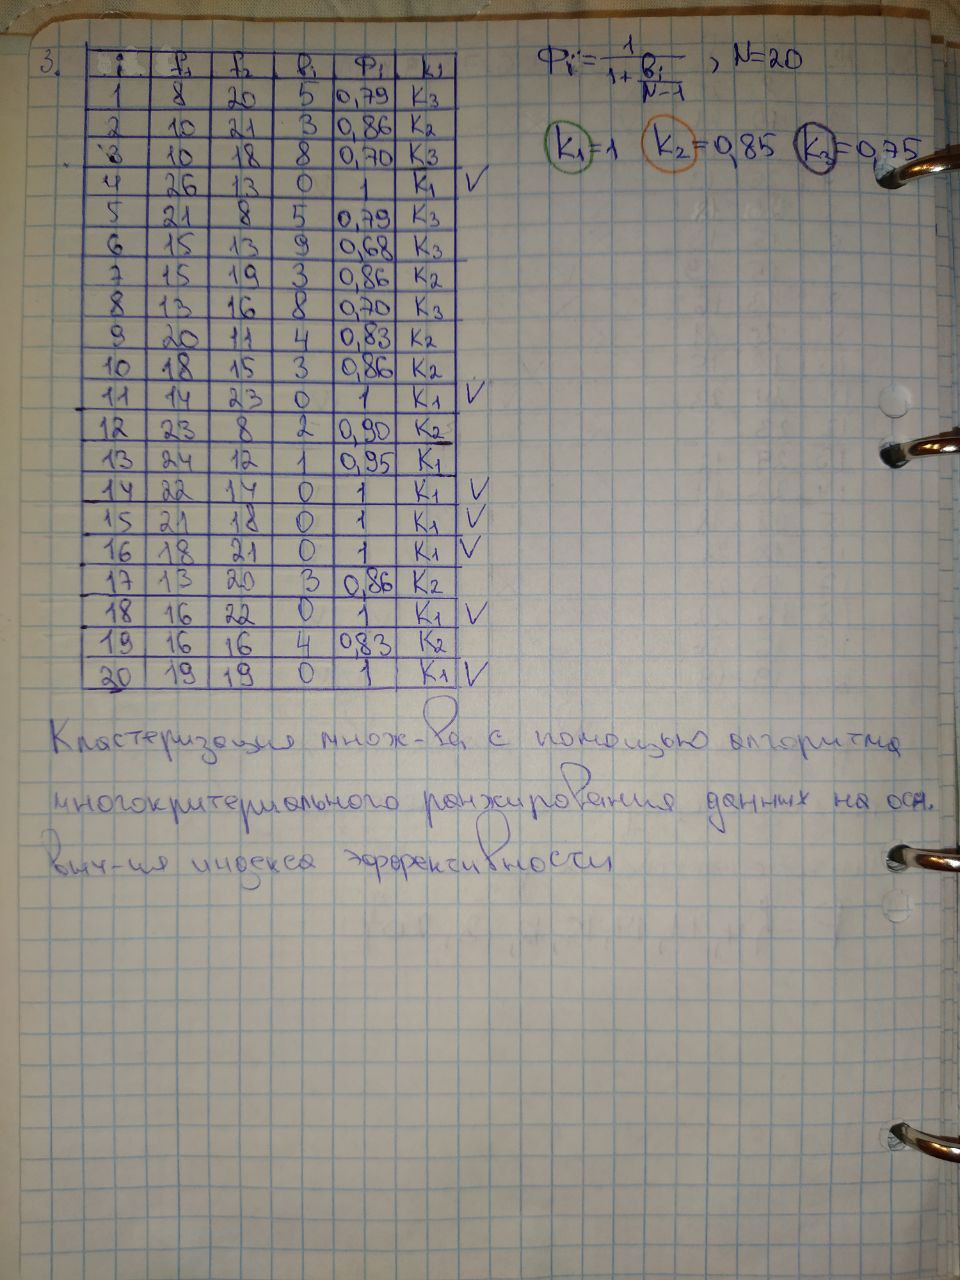 3.
i f₁ f₂ bᵢ Фᵢ kᵢ
1 8 20 5 0,79 K₃
2 10 21 3 0,86 K₂
3 10 18 8 0,70 K₃
4 26 13 0 1 K₁ ✓
5 21 8 5 0,79 K₃
6 15 13 9 0,68 K₃
7 15 19 3 0,86 K₂
8 13 16 8 0,70 K₃
9 20 11 4 0,83 K₂
10 18 15 3 0,86 K₂
11 14 23 0 1 K₁ ✓
12 23 8 2 0,90 K₂
13 24 12 1 0,95 K₁
14 22 14 0 1 K₁ ✓
15 21 18 0 1 K₁ ✓
16 18 21 0 1 K₁ ✓
17 13 20 3 0,86 K₂
18 16 22 0 1 K₁ ✓
19 16 16 4 0,83 K₂
20 19 19 0 1 K₁ ✓
Фᵢ = 1 / (1 + bᵢ/(N-1)), N=20
K₁=1 K₂=0,85 K₃=0,75
Кластеризация множ-ва с помощью алгоритма
многокритериального ранжирования данных на осн.
выч-ия индекса эффективности